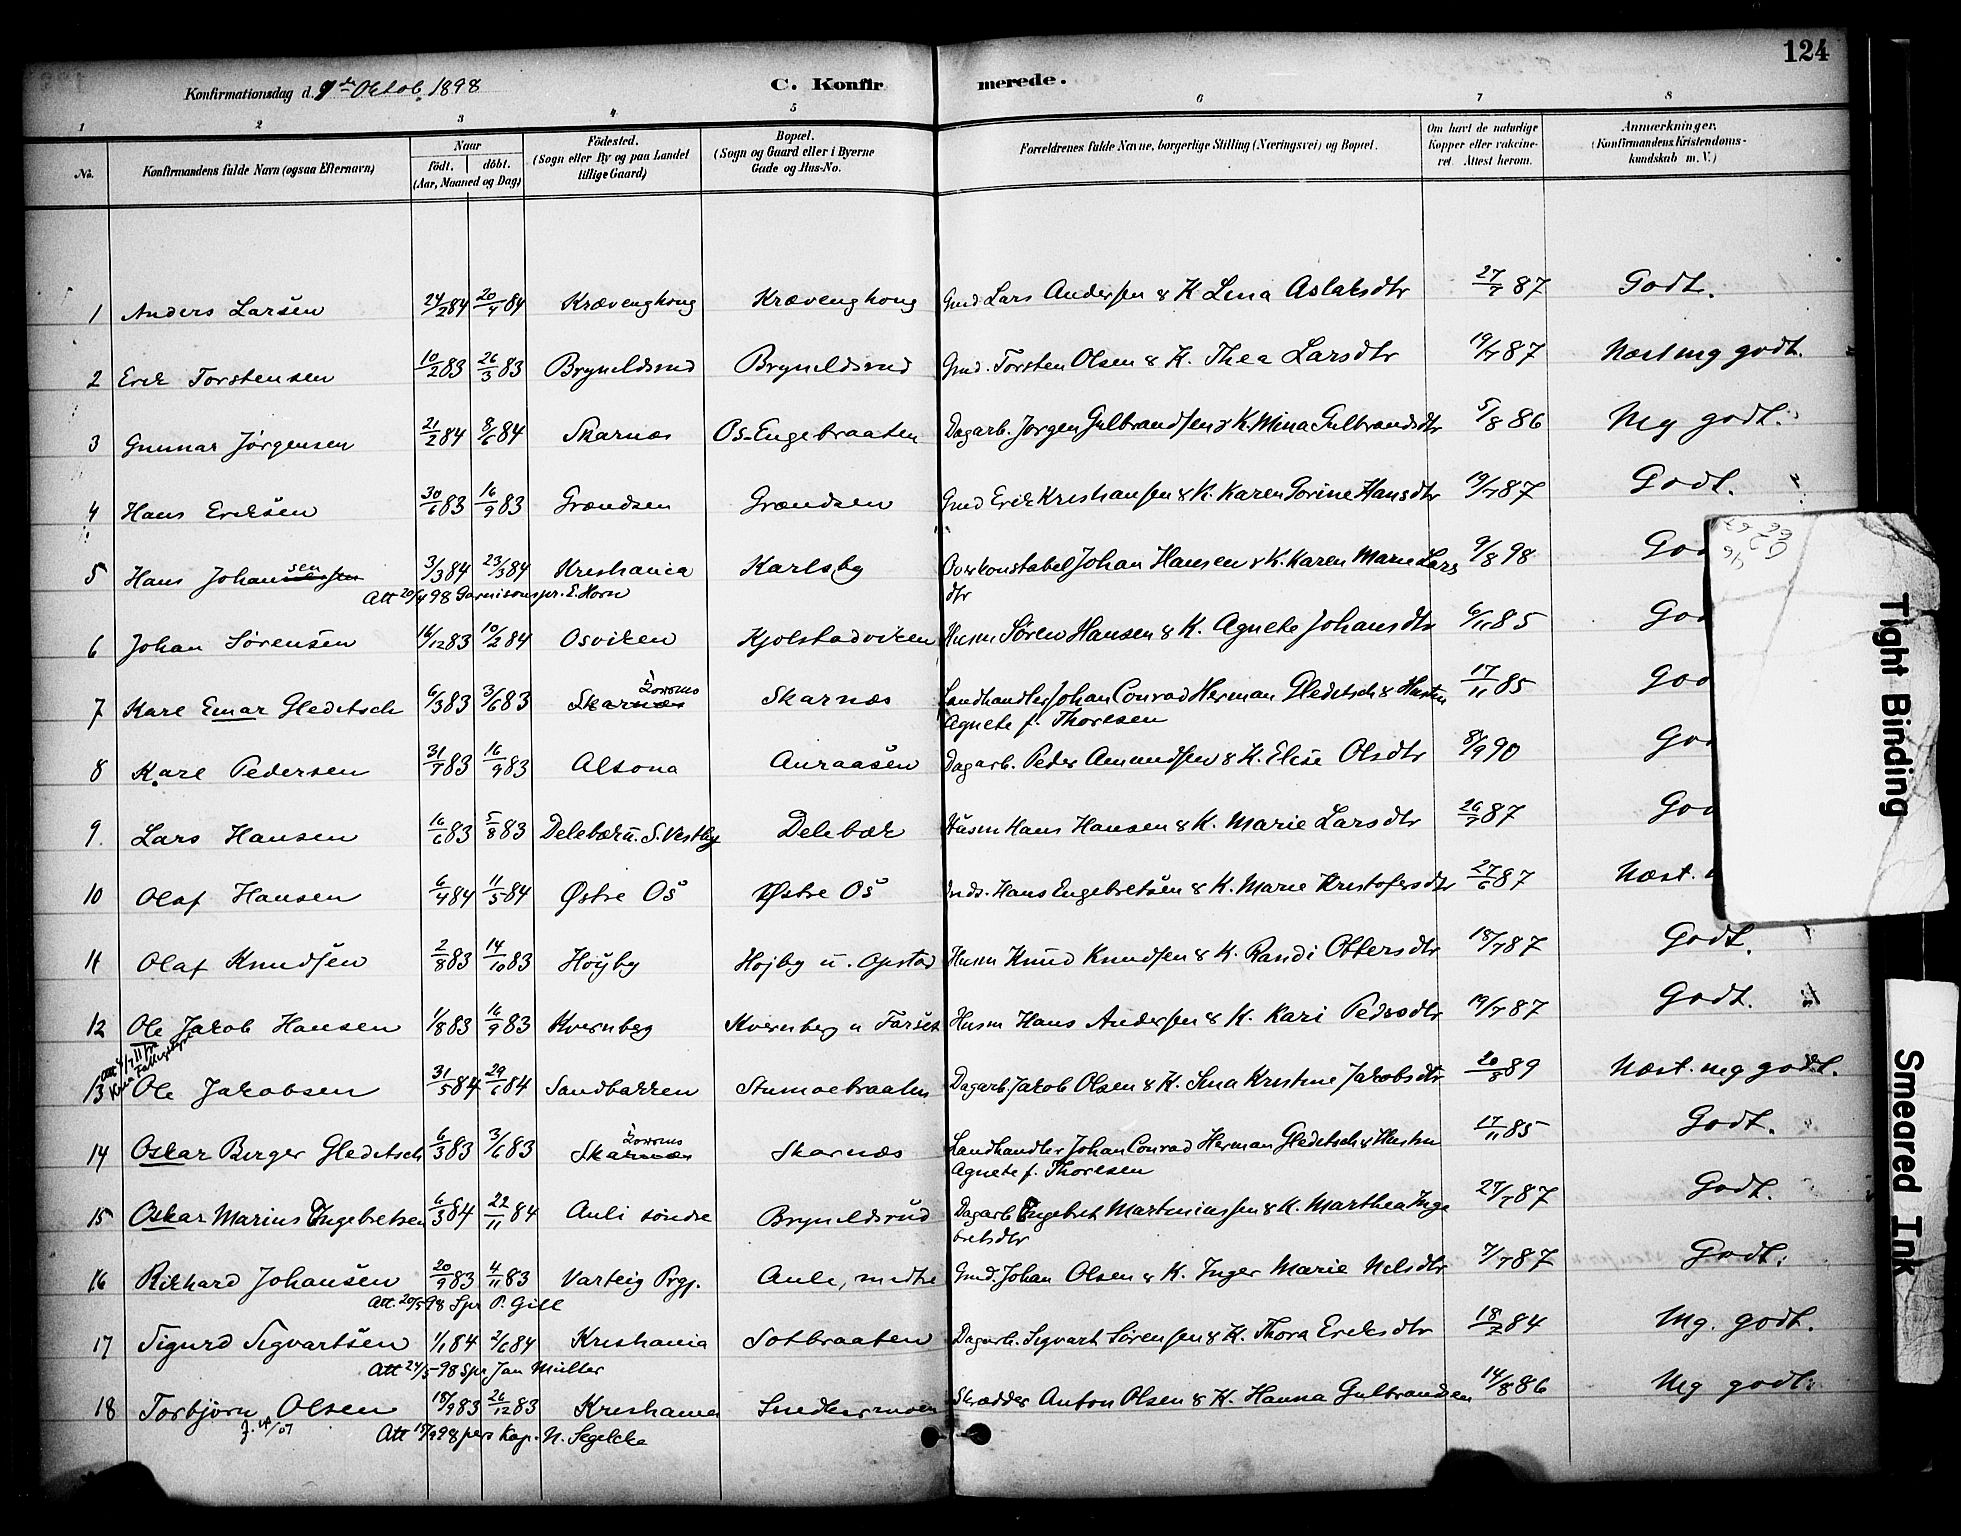 124
Konfirmationsdag d. 9de Oktob. 1898 C. Konfirmerede.
1 2 3 4 5 6 7 8
No. Konfirmandens fulde Navn (ogsaa Efternavn) Naar födt. döbt. (Aar, Maaned og Dag) Födested. (Sogn eller By og paa Landet tillige Gaard) Bopæl. (Sogn og Gaard eller i Byerne Gade og Hus-No. Forældrenes fulde Navne, borgerlige Stilling (Næringsvei) og Bopæl. Om havt de naturlige Kopper eller vakcineret. Attest herom. Anmærkninger. (Konfirmandens Kristendomskundskab m. V.)
1 Anders Larsen 24/2 84 20/4 84 Krævenghoug Krævenghoug Gmd Lars Andersen & K Lina Aslaksdtr 27/7 87 Godt.
2 Erik Torstensen 10/2 83 26/3 83 Bryneldsrud Bryneldsrud Gmd. Torsten Olsen & K. Thea Larsdtr 19/7 87 Næst mg godt.
3 Gunnar Jörgensen 21/2 84 8/6 84 Skarnæs Os-Engebraaten Dagarb. Jørgen Gulbrandsen & K. Mina Gulbrandsdtr 5/8 86 Mg godt.
4 Hans Eriksen 30/6 83 16/9 83 Grændsen Grændsen Gmd Erik Kristiansen & K. Karen Gorine Hansdtr 19/7 87 Godt.
5 Hans Johansen 3/3 84 23/3 84 Kristiania Karlsby Overkonstabel Johan Hansen & K. Karen Marie Lars 9/8 98 Go
dtr
Att 20/4 98 Garnisonspr. E. Horn
6 Johan Sörensen 14/12 83 10/2 84 Osviken Kjolstadviken Husm Søren Hansen & K. Agnete Johansdtr 6/11 85 Go
7 Karl Einar Gleditsch 6/3 83 3/6 83 Skarnæs Zoroms Skarnæs Landhandler Johan Conrad Herman Gleditsch & Hustru 17/11 85 Go
Agnete f. Thoresen
8 Karl Pedersen 31/7 83 16/9 83 Altona Auraasen Dagarb. Peder Amundsen & K. Elise Olsdtr 8/9 90 Go
9. Lars Hansen 16/6 83 5/8 83 Delebæk u. S. Vestby Delebæk Husm Hans Hansen & K. Marie Larsdtr 26/7 87 Go
10 Olaf Hansen 6/4 84 11/5 84 Østre Os Østre Os Inds. Hans Engebretsen & K. Marie Kristofersdtr 27/6 87 Næst.
11 Olaf Knudsen 2/8 83 14/10 83 Høyby Højby u. Opstad Husm Knud Knudsen & K. Randi Ottersdtr 18/7 87 Godt.
12 Ole Jakob Hansen 1/8 83 16/9 83 Kvernberg Kvernberg u Farset Husm Hans Andersen & K. Kari Pedersdtr 19/7 87 Godt.
13 Ole Jakobsen 31/5 84 29/6 84 Sandbakken Stumoebraaten Dagarb Jakob Olsen & K. Lina Kristine Jakobsdtr 20/8 89 Næst. mg godt.
14 Oskar Birger Gleditsch 6/3 83 3/6 83 Skarnæs Zoroms Skarnæs Landhandler Johan Conrad Herman Gleditsch & Hustru 17/11 85 Godt.
Agnete f. Thoresen
15 Oskar Marius Engebretsen 6/3 84 22/11 84 Auli söndre Bryneldsrud Dagarb Engebret Martiniussen & K. Marthea Inge 27/7 87 Godt.
bretsdtr
16 Rikhard Johansen 20/9 83 4/11 83 Varteig Prgj. Auli, midtre Gmd. Johan Olsen & K. Inger Marie Nilsdtr 7/7 87 Godt.
Att. 20/5 98 Spr P. Gill
17 Sigurd Sigvartsen 1/1 84 2/6 84 Kristiania Sotbraaten Dagarb. Sigvart Sörensen & K. Thora Eriksdtr 18/2 84 Mg. godt.
Att 24/5-98 Spr Jan Müller
18 Torbjørn Olsen 18/9 83 26/12 83 Kristiania Snedkermoen Skrædder Anton Olsen & K. Hanna Gulbrandsen 14/8 86 Mg godt.
Att 17/9 98 pers Kap. N. Segelcke
Tight Binding
Smeared Ink